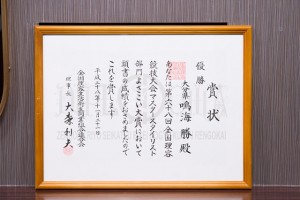 賞状
優勝
大分県
鳴海 勝殿
あなたは第六十八回全国理容
競技大会マスターズスタイリスト
部門よさこい大賞において
頭書の成績をおさめましたので
これを賞します
平成二十八年十一月二十一日
全国理容生活衛生同業組合連合会
理事長 大森利夫